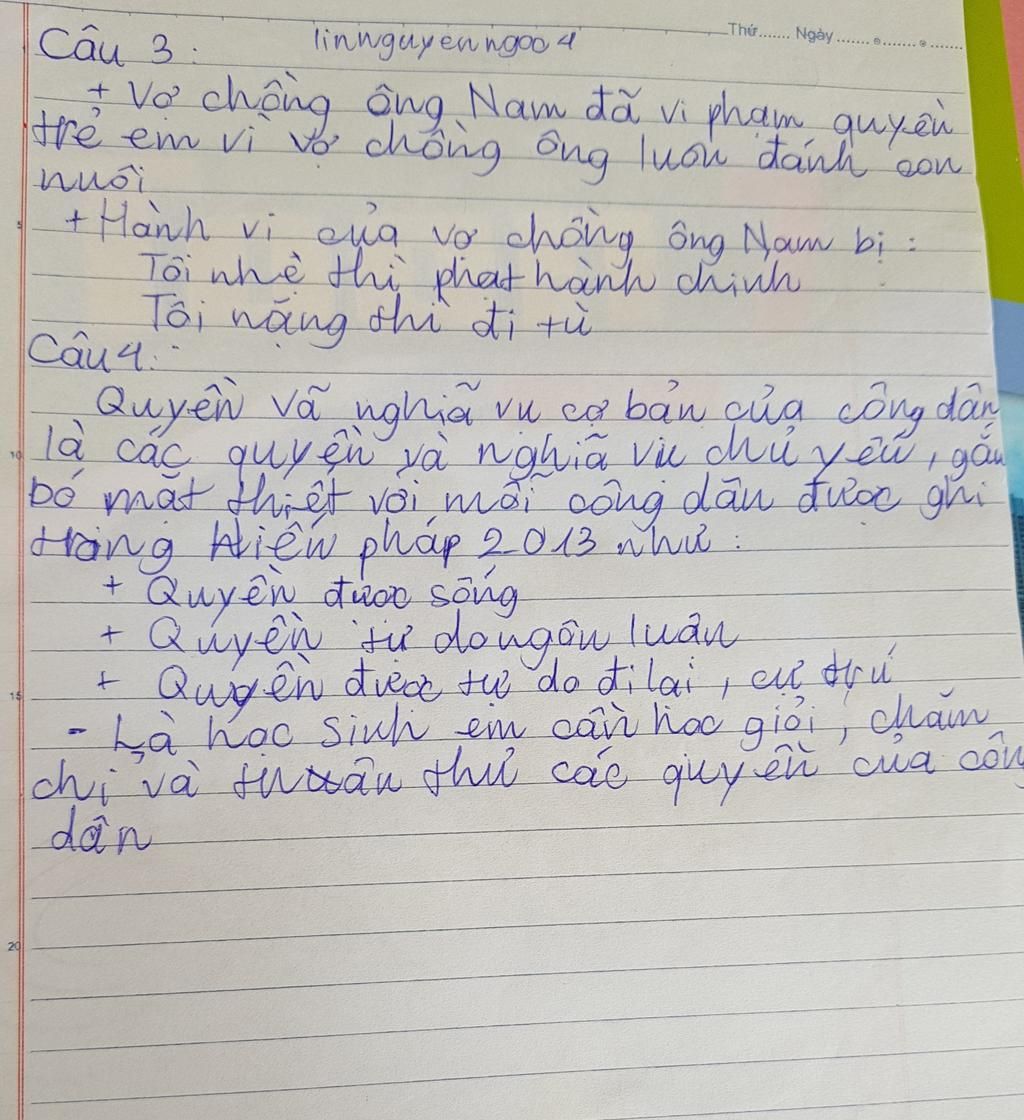 Thứ....... Ngày ....... e ....... e .......
Câu 3: linnguyenngoo4
+ Vơ chồng ông Nam đã vi phạm quyền
trẻ em vì vơ chồng ông luon đánh con
nuôi
5
+ Hành vi của vơ chồng ông Nam bị :
Tôi nhẹ thì phat hành chinh
Tôi nặng thì đi tù
Câu 4:
Quyền vã nghiã vu cơ bản của công dân
10 là các quyền và nghiã vu chủ yếu, gắn
bó mât thiết với mỗi công dân được ghi
trong Hiến pháp 2013 như :
+ Quyền được sống
+ Quyền tư do ngôn luân
15 + Quyền được tư do đi lai, cư trú
- Là hoc sinh em cần hoc giỏi, chăm
chỉ và tuân thủ các quyền của côn
dân
20